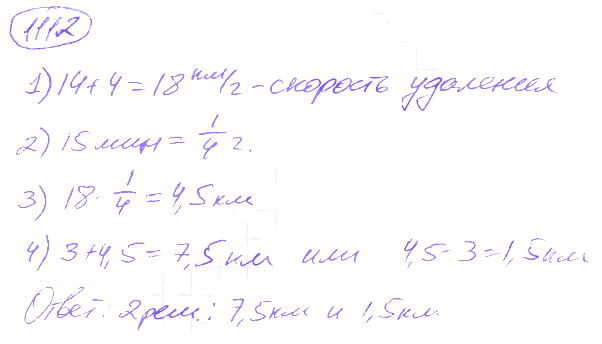 1112
1) 14+4=18 км/г - скорость удаления
2) 15 мин = 1/4 г.
3) 18 · 1/4 = 4,5 км
4) 3+4,5=7,5 км или 4,5-3=1,5 км
Ответ: 2 реш.: 7,5 км и 1,5 км